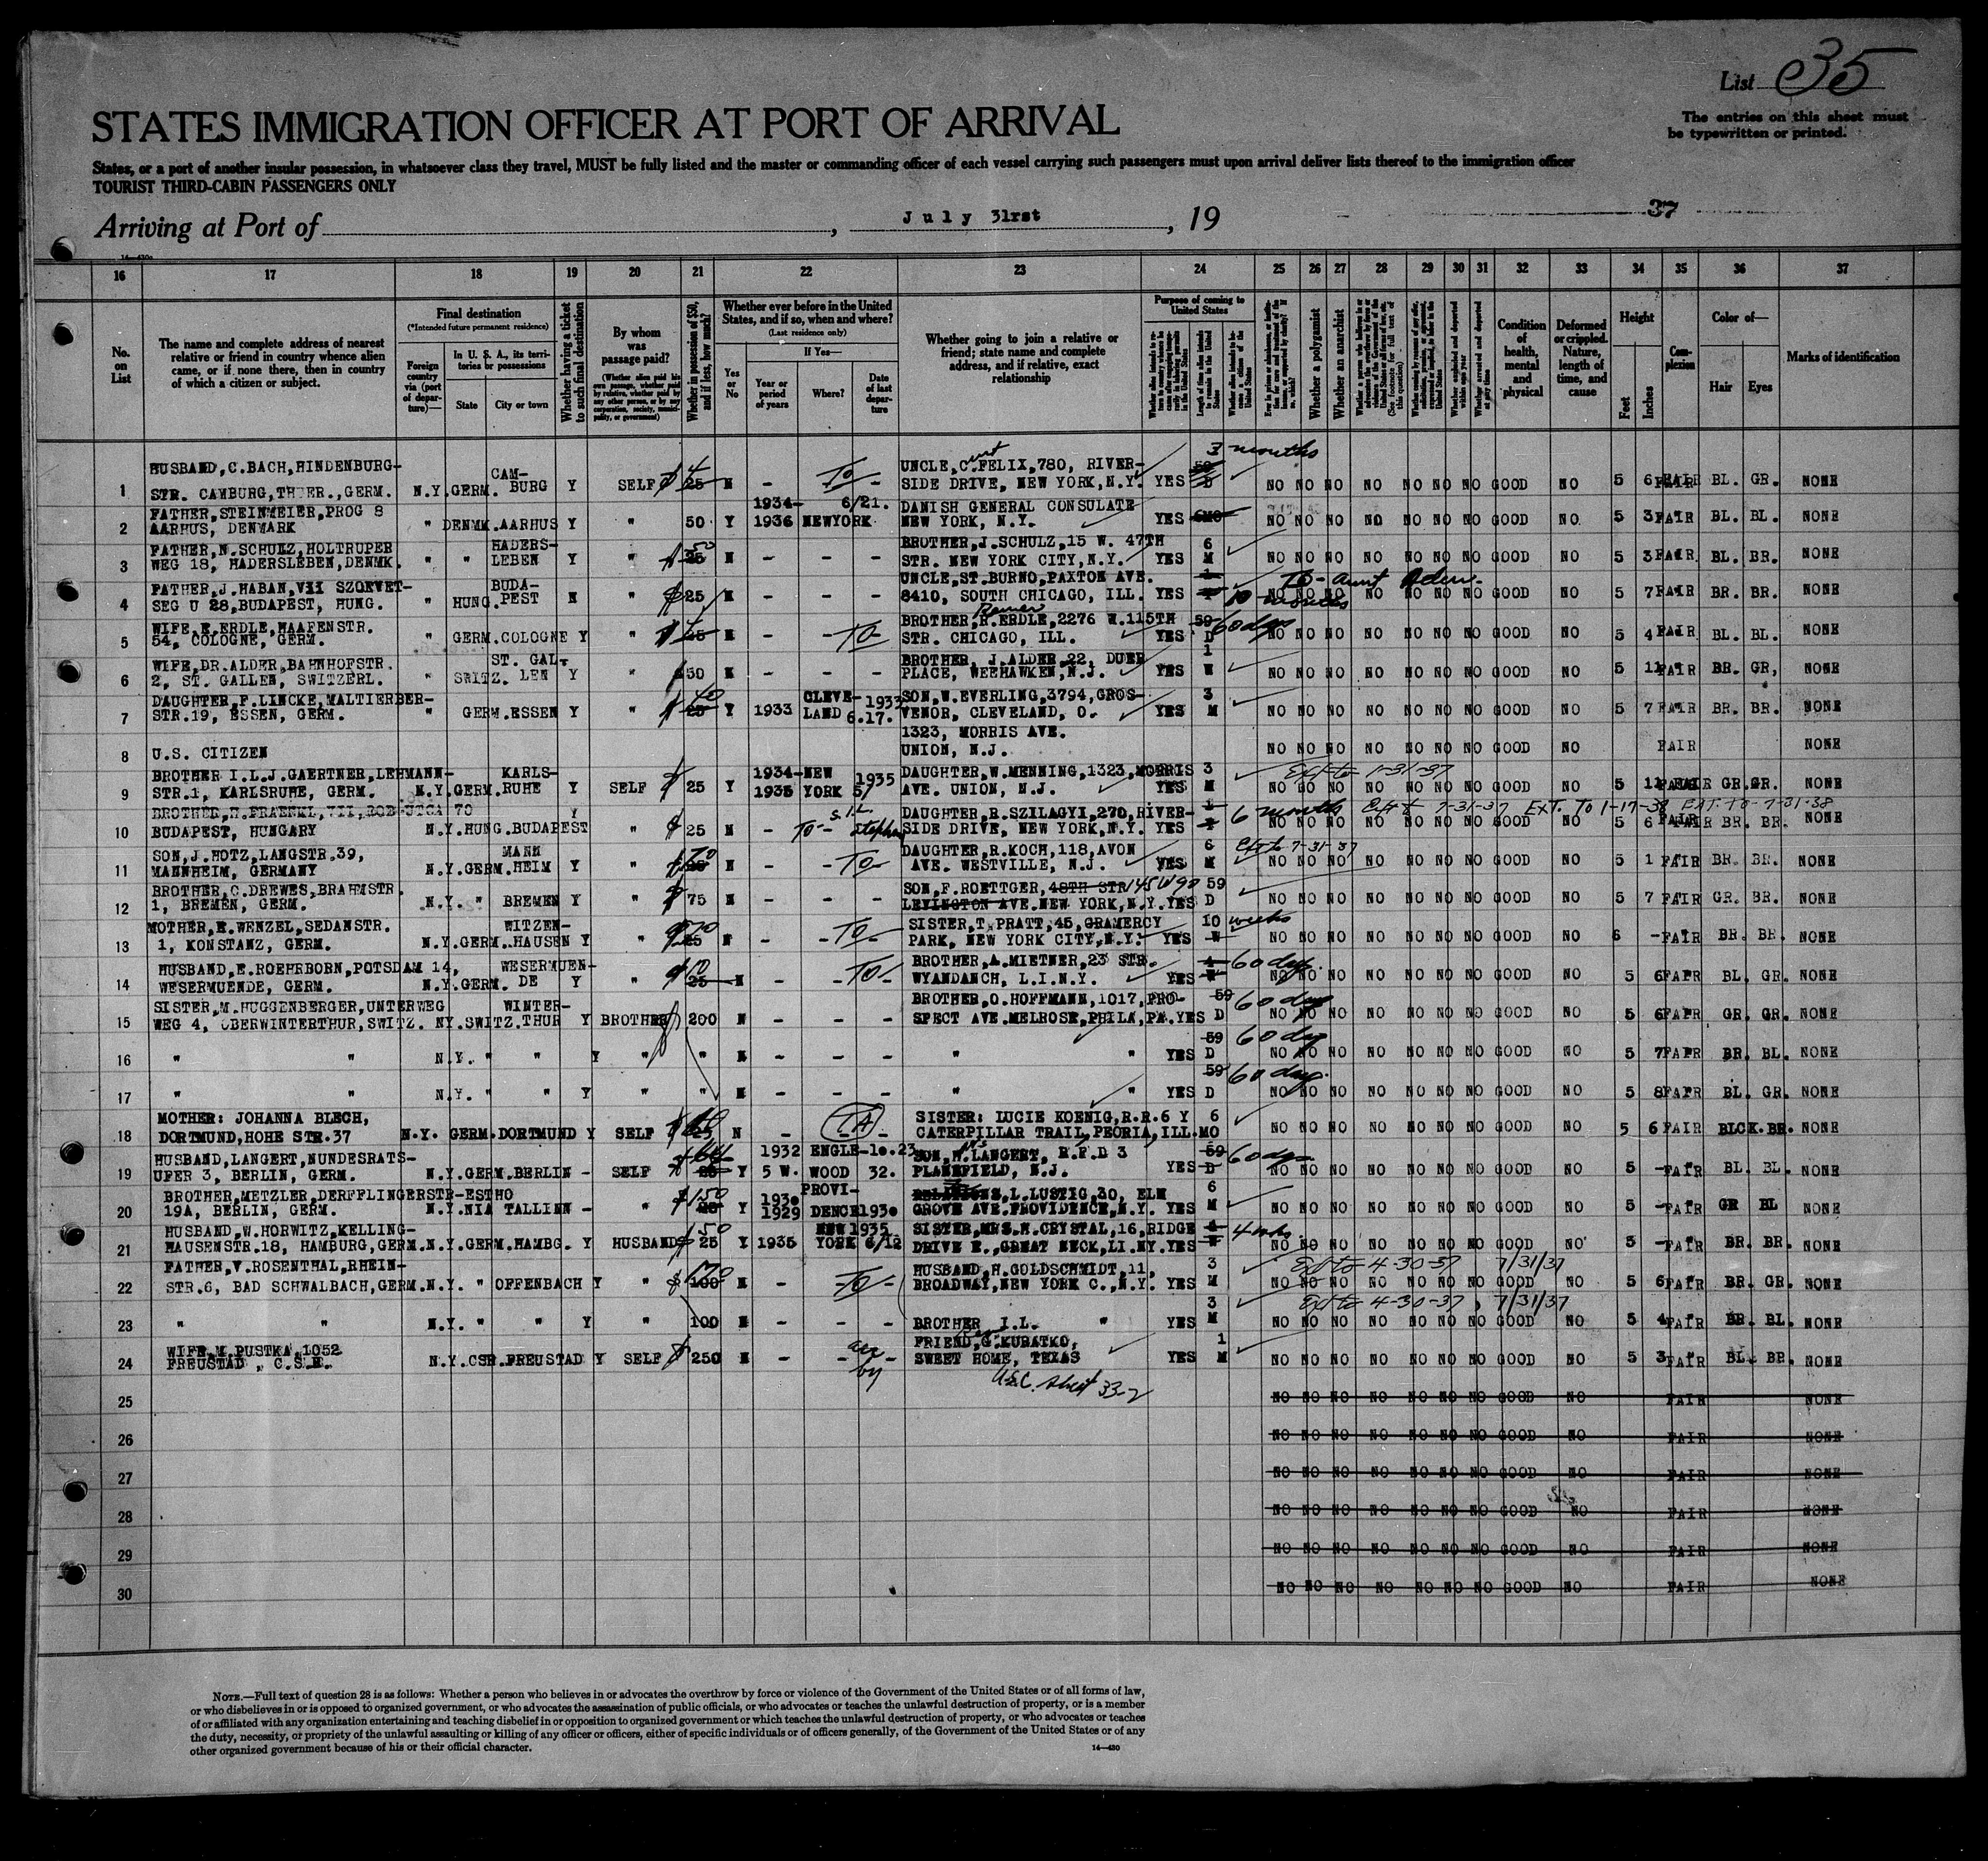 List 35
The entries on this sheet must
be typewritten or printed.
STATES IMMIGRATION OFFICER AT PORT OF ARRIVAL
States, or a port of another insular possession, in whatsoever class they travel, MUST be fully listed and the master or commanding officer of each vessel carrying such passengers must upon arrival deliver lists thereof to the immigration officer
TOURIST THIRD-CABIN PASSENGERS ONLY
Arriving at Port of , July 31rst , 19 37
16 17 18 19 20 21 22 23 24 25 26 27 28 29 30 31 32 33 34 35 36 37
No. on List
The name and complete address of nearest
relative or friend in country whence alien
came, or if none there, then in country
of which a citizen or subject.
Final destination
(*Intended future permanent residence)
Foreign country via (port of departure)—
In U. S. A., its territories or possessions
State
City or town
Whether having a ticket to such final destination
By whom was passage paid?
(Whether alien paid his own passage, whether paid by relative, whether paid by any other person, or by any corporation, society, municipality, or government)
Whether in possession of $50, and if less, how much?
Whether ever before in the United
States, and if so, when and where?
(Last residence only)
Yes or No
If Yes—
Year or period of years
Where?
Date of last departure
Whether going to join a relative or
friend; state name and complete
address, and if relative, exact
relationship
Purpose of coming to United States
Length of time alien intends to remain in the United States
Whether a polygamist
Whether an anarchist
Condition of health, mental and physical
Deformed or crippled. Nature, length of time, and cause
Height
Feet
Inches
Complexion
Color of—
Hair
Eyes
Marks of identification
3 months
HUSBAND,C.BACH,HINDENBURG- CAM- UNCLE,C.FELIX,780, RIVER-
1 STR. CAMBURG,THUER.,GERM. N.Y.GERM. BURG Y SELF 25 N - To - SIDE DRIVE, NEW YORK,N.Y. YES D NO NO NO NO NO NO NO GOOD NO 5 6 FAIR BL. GR. NONE
FATHER,STEINMEIER,PROG 8 1934- 6/21. DANISH GENERAL CONSULATE
2 AARHUS, DENMARK " DENMK.AARHUS Y " 50 Y 1936 NEWYORK NEW YORK, N.Y. YES 6MO NO NO NO NO NO NO NO GOOD NO 5 3 FAIR BL. BL. NONE
FATHER,N.SCHULZ,HOLTRUPER HADERS- 50 BROTHER,J.SCHULZ,15 W. 47TH 6
3 WEG 18, HADERSLEBEN,DENMK. " " LEBEN Y " 25 N - - - STR. NEW YORK CITY,N.Y. YES M NO NO NO NO NO NO NO GOOD NO 5 3 FAIR BL. BR. NONE
FATHER,J.HABAN,VII SZOEVET- BUDA- UNCLE,ST.BURNO,PAXTON AVE. 1 To - aunt
4 SEG U 28,BUDAPEST, HUNG. " HUNG.PEST N " $25 N - - - 8410, SOUTH CHICAGO, ILL. YES Y 10 months NO NO NO NO NO NO NO GOOD NO 5 7 FAIR BR. BR. NONE
WIFE,E.ERDLE,HAAFENSTR. BROTHER,R.ERDLE,2276 W.115TH 59 60 days
5 54, COLOGNE, GERM. " GERM.COLOGNE Y " N - -To- STR. CHICAGO, ILL. YES D NO NO NO NO NO NO NO GOOD NO 5 4 FAIR BL. BL. NONE
WIFE,DR.ALDER,BAHNHOFSTR. ST. GAL- BROTHER, J.ALDER,22, DUER 1
6 2, ST. GALLEN, SWITZERL. " SWITZ. LEN Y " $50 N - - - PLACE, WEEHAWKEN,N.J. YES W NO NO NO NO NO NO NO GOOD NO 5 11 FAIR BR. GR, NONE
DAUGHTER,F.LINCKE,MALTIERBER- CLEVE- 1933 SON,W.EVERLING,3794,GROS- 3
7 STR.19, ESSEN, GERM. " GERM.ESSEN Y " 25 Y 1933 LAND 6.17. VENOR, CLEVELAND, O. YES M NO NO NO NO NO NO NO GOOD NO 5 7 FAIR BR. BR. NONE
1323, MORRIS AVE.
8 U.S. CITIZEN UNION, N.J. NO NO NO NO NO NO NO GOOD NO FAIR NONE
BROTHER I.L.J.GAERTNER,LEHMANN- KARLS- 1934-NEW 1935 DAUGHTER,W.MENNING,1323,MORRIS 3 Ext to 1-31-37
9 STR.1, KARLSRUHE, GERM. N.Y.GERM.RUHE Y SELF $ 25 Y 1935 YORK 5/ AVE. UNION, N.J. YES M NO NO NO NO NO NO NO GOOD NO 5 11 FAIR GR.GR. NONE
BROTHER,H.FRAENKL,VII, 70 Y s.i.l. DAUGHTER,R.SZILAGYI,270,RIVER- 6 months Ext 7-31-37 EXT. TO 1-17-38 EXT. TO - 7-31-38
10 BUDAPEST, HUNGARY N.Y.HUNG.BUDAPEST " $ 25 N - To - Stephen SIDE DRIVE, NEW YORK,N.Y. YES NO NO NO NO NO NO NO GOOD NO 5 6 FAIR BR. BR. NONE
SON,J.HOTZ,LANGSTR.39, MANN 70 DAUGHTER,R.KOCH,118,AVON 6 Ext to 7-31-37
11 MANNHEIM, GERMANY N.Y.GERM.HEIM Y " N - -To- AVE. WESTVILLE, N.J. YES M NO NO NO NO NO NO NO GOOD NO 5 1 FAIR BR. BR. NONE
BROTHER,C.DREWES,BRAHMSTR. SON,F.ROETTGER,48TH STR 145 W 90 59
12 1, BREMEN, GERM. N.Y. " BREMEN Y " 75 N - - - LEXINGTON AVE.NEW YORK,N.Y.YES D NO NO NO NO NO NO NO GOOD NO 5 7 FAIR GR. BR. NONE
MOTHER,E.WENZEL,SEDANSTR. WITZEN- SISTER,T PRATT,45,GRAMERCY 10 weeks
13 1, KONSTANZ, GERM. N.Y.GERM.HAUSEN Y " 25 N - -To- PARK, NEW YORK CITY,N.Y. YES W NO NO NO NO NO NO NO GOOD NO 6 - FAIR BR. BR. NONE
HUSBAND,E.ROEHRBORN,POTSDAM 14, WESERMUEN- BROTHER,A.MIETNER,23 STR. 60 days
14 WESERMUENDE, GERM. N.Y.GERM. DE Y " 25 N - -To- WYANDANCH, L.I.N.Y. YES NO NO NO NO NO NO NO GOOD NO 5 6 FAIR BL. GR. NONE
SISTER,M.HUGGENBERGER,UNTERWEG WINTER- BROTHER,O.HOFFMANN,1017,PRO- 59 60 days
15 WEG 4, OBERWINTERTHUR,SWITZ. NY.SWITZ.THUR Y BROTHER 200 N - - - SPECT AVE.MELROSE,PHILA,PA.YES D NO NO NO NO NO NO NO GOOD NO 5 6 FAIR GR. GR. NONE
59 60 days
16 " " N.Y. " " Y " " N - - - " " YES D NO NO NO NO NO NO NO GOOD NO 5 7 FAIR BR. BL. NONE
59 60 days.
17 " " N.Y. " " Y " " N - - - " " YES D NO NO NO NO NO NO NO GOOD NO 5 8 FAIR BL. GR. NONE
MOTHER: JOHANNA BLECH, SISTER: LUCIE KOENIG,R.R.6 Y 6
18 DORTMUND,HOHE STR.37 N.Y. GERM.DORTMUND Y SELF 25 N - - - CATERPILLAR TRAIL,PEORIA,ILL.MO NO NO NO NO NO NO NO GOOD NO 5 6 FAIR BLCK.BR. NONE
HUSBAND,LANGERT,NUNDESRATS- 1932 ENGLE-10.23 SON,H.LANGERT, R.F.D 3 59 60 days
19 UFER 3, BERLIN, GERM. N.Y.GERM.BERLIN - SELF Y 5 W. WOOD 32. PLAINFIELD, N.J. YES D NO NO NO NO NO NO NO GOOD NO 5 - FAIR BL. BL. NONE
BROTHER,METZLER,DERFFLINGERSTR-ESTHO $150 1930 PROVI- L.LUSTIG,30, ELM 6
20 19A, BERLIN, GERM. N.Y.NIA TALLINN - " Y 1929 DENCE 1930 GROVE AVE.PROVIDENCE,N.Y. YES M NO NO NO NO NO NO NO GOOD NO 5 - FAIR GR BL NONE
HUSBAND,W.HORWITZ,KELLING- 50 NEW 1935 SISTER,MRS.M.CRYSTAL,16,RIDGE 4 wks.
21 HAUSENSTR.18, HAMBURG,GERM.N.Y.GERM.HAMBG. Y HUSBAND 25 Y 1935 YORK 6/12 DRIVE E.,GREAT NECK,LI.NY.YES W NO NO NO NO NO NO NO GOOD NO 5 - FAIR BR. BR. NONE
FATHER,V.ROSENTHAL,RHEIN- HUSBAND,H.GOLDSCHMIDT,11, 3 Ext to 4-30-37 7/31/37
22 STR.6, BAD SCHWALBACH,GERM.N.Y. " OFFENBACH Y " 100 N - To - BROADWAY,NEW YORK C.,N.Y. YES M NO NO NO NO NO NO NO GOOD NO 5 6 FAIR BR. GR. NONE
3 Ext to 4-30-37, 7/31/37
23 " " N.Y. " " Y " 100 N - - - BROTHER I.L. " YES M NO NO NO NO NO NO NO GOOD NO 5 4 FAIR BR. BL. NONE
WIFE,M.PUSTKA,1052 FRIEND,G.KUBATKO, 1
24 FREUSTAD , C.S.R. N.Y.CSR.FREUSTAD Y SELF $ 250 N - - - SWEET HOME, TEXAS YES M NO NO NO NO NO NO NO GOOD NO 5 3 FAIR BL. BR. NONE
by
sheet 33-2
25 NO NO NO NO NO NO NO GOOD NO FAIR NONE
26 NO NO NO NO NO NO NO GOOD NO FAIR NONE
27 NO NO NO NO NO NO NO GOOD NO FAIR NONE
28 NO NO NO NO NO NO NO GOOD NO FAIR NONE
29 NO NO NO NO NO NO NO GOOD NO FAIR NONE
30 NO NO NO NO NO NO NO GOOD NO FAIR NONE
NOTE.—Full text of question 28 is as follows: Whether a person who believes in or advocates the overthrow by force or violence of the Government of the United States or of all forms of law,
or who disbelieves in or is opposed to organized government, or who advocates the assassination of public officials, or who advocates or teaches the unlawful destruction of property, or is a member
of or affiliated with any organization entertaining and teaching disbelief in or opposition to organized government or which teaches the unlawful destruction of property, or who advocates or teaches
the duty, necessity, or propriety of the unlawful assaulting or killing of any officer or officers, either of specific individuals or of officers generally, of the Government of the United States or of any
other organized government because of his or their official character.
14—430